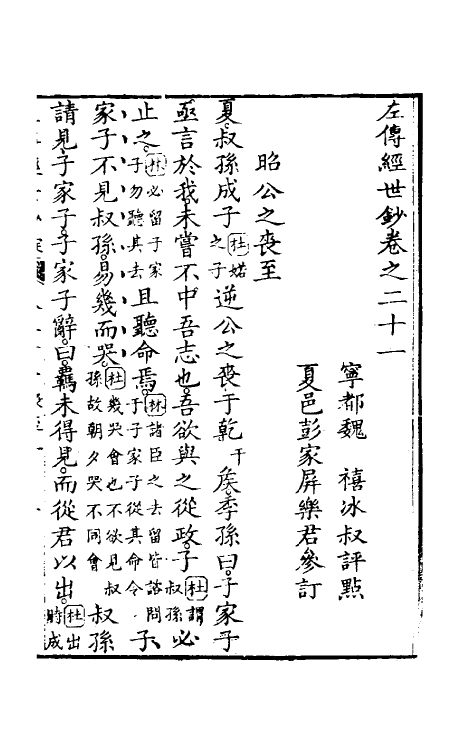 左傳經世鈔卷之二十一
寧都魏　禧冰叔評點
夏邑彭家屏樂君參訂
昭公之喪至
夏叔孫成子杜婼之子逆公之喪于乾干侯季孫曰子家子
亟言於我未嘗不中吾志也吾欲與之從政子杜謂叔孫必
止之林必留子家子勿聽其去且聽命焉林諸臣之去留皆諮問于子家子從其命令子
家子不見叔孫易幾而哭杜幾哭會也不欲見叔孫故朝夕哭不同會叔孫
請見子家子子家子辭曰羈未得見而從君以出杜出時成